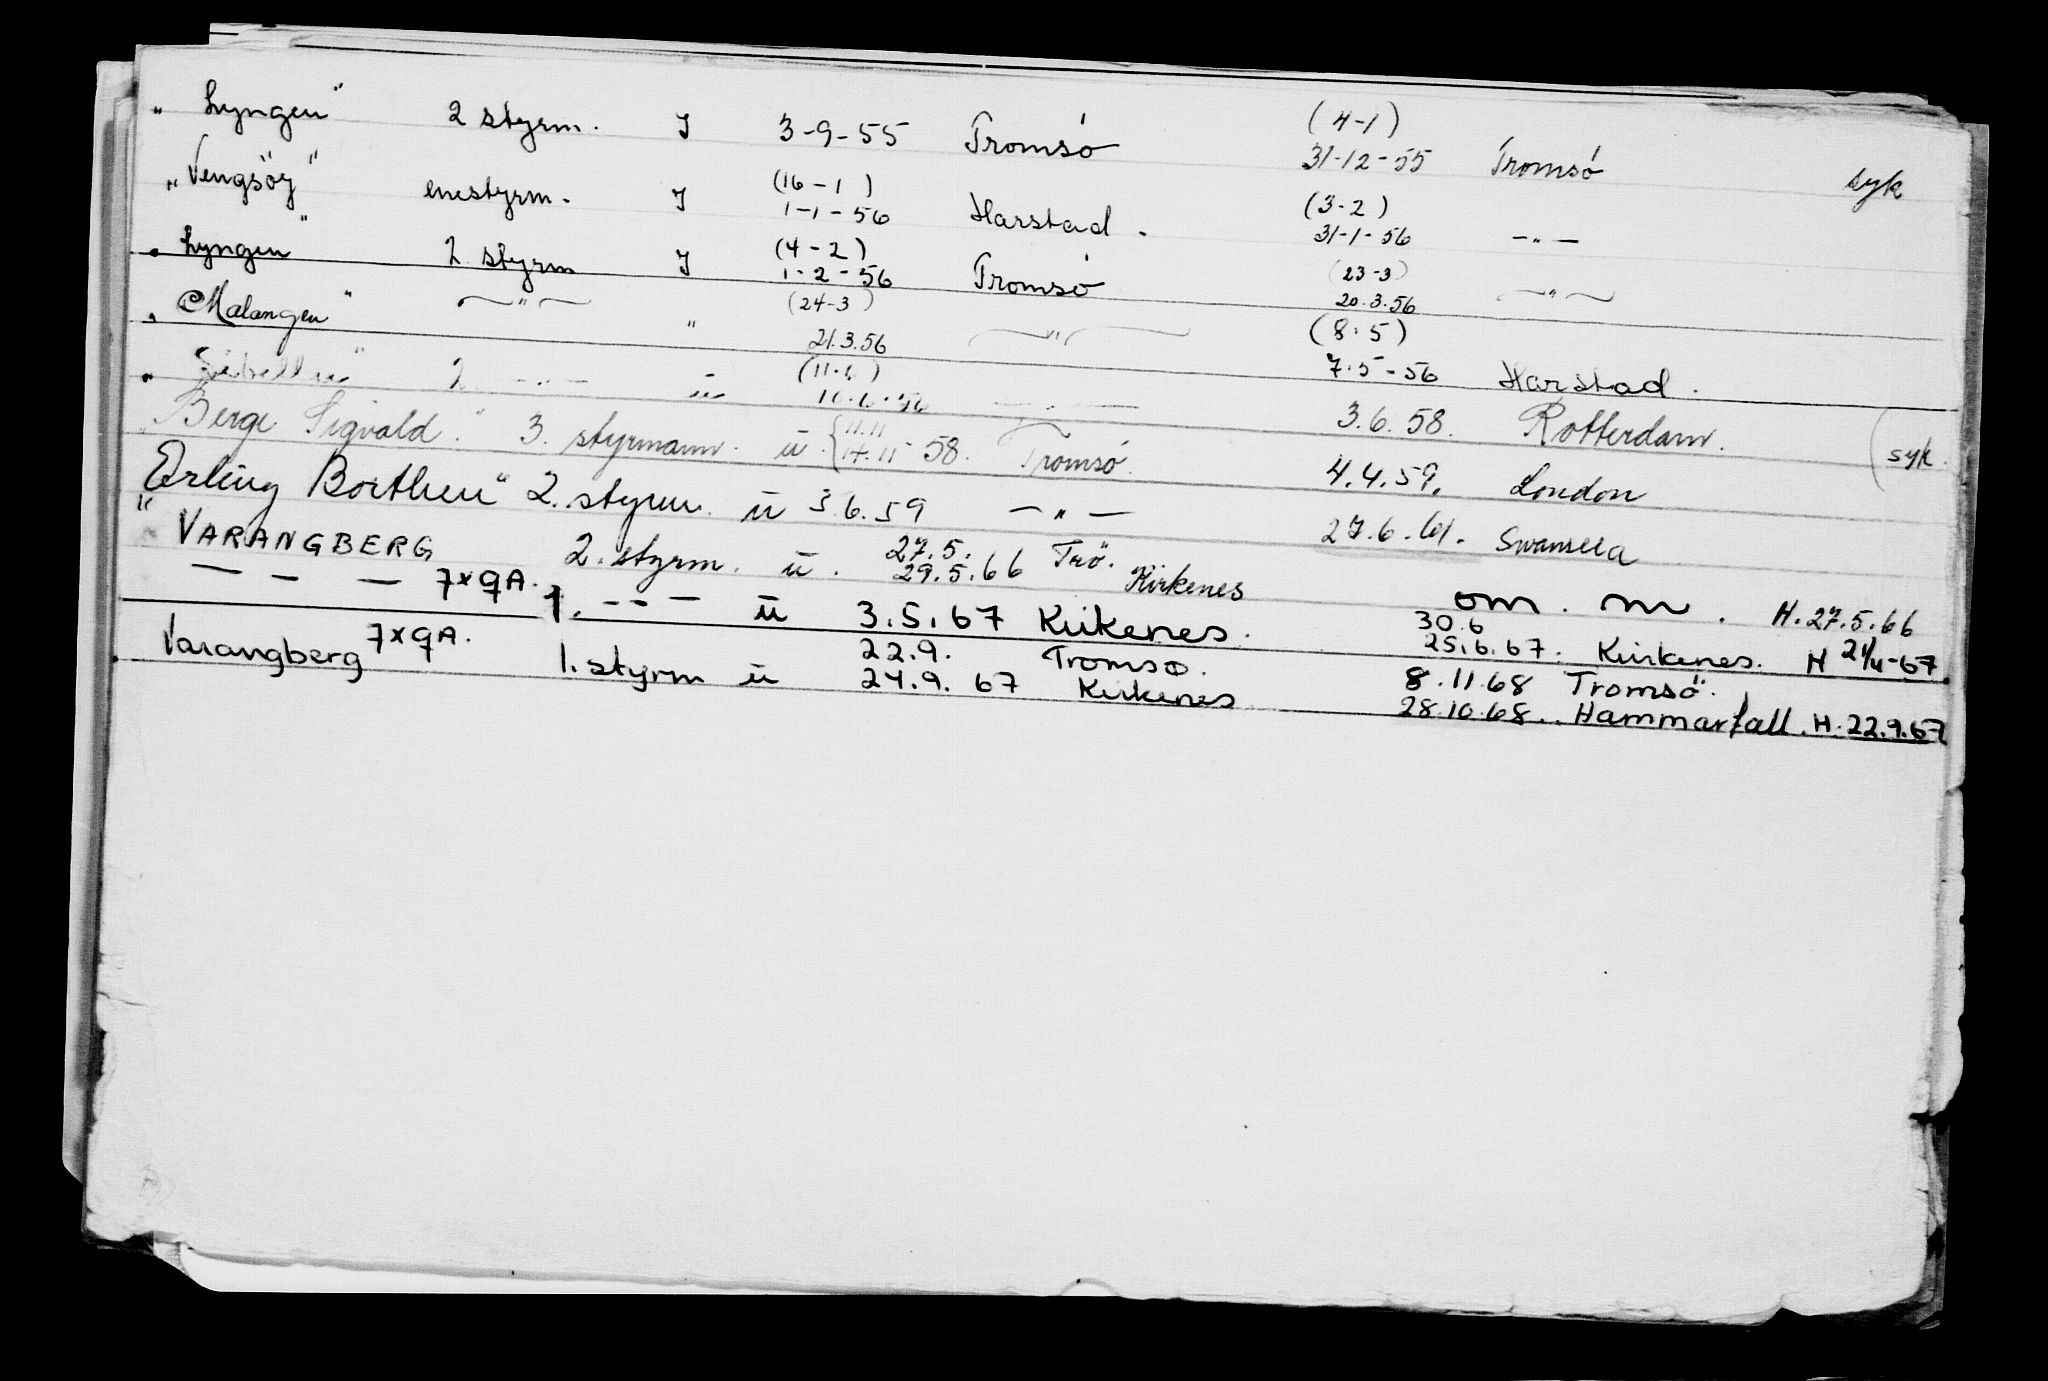 „ Lyngen" 2 styrm. I 3-9-55 Tromsø (4-1) 31-12-55 Tromsø syk
„Vengsöy" enestyrm. I (16-1) 1-1-56 Harstad. (3-2) 31-1-56 -"-
„ Lyngen" 2. styrm I (4-2) 1-2-56 Tromsø (23-3) 20.3.56 -"-
„ Malangen" -"- " (24-3) 21.3.56 -"- (8.5) 7.5-56 Harstad.
„ 2 -"- ü (11.6) 10.6.56 -"- 3.6.58. Rotterdam. (syk.
„Berge Sigvald." 3. styrmann. ü. {11.11 14.11 58. Tromsø. 4.4.59. London
„Erling Borthen" 2. styrm. ü 3.6.59 -"- 27.6.61. Swansea
VARANGBERG 2. styrm. ü. 27.5. 29.5.66 Trö. Kirkenes om. m. H.27.5.66
- - - 7x9A. 1. - - - ü 3.5.67 Kirkenes. 30.6 25.6.67. Kirkenes. H 21/4-67
Varangberg 7x9A. 1. styrm ü 22.9. Tromsø. 24.9.67 Kirkenes 8.11.68 Tromsö. 28.10.68.. Hammarfall. H.22.9.67